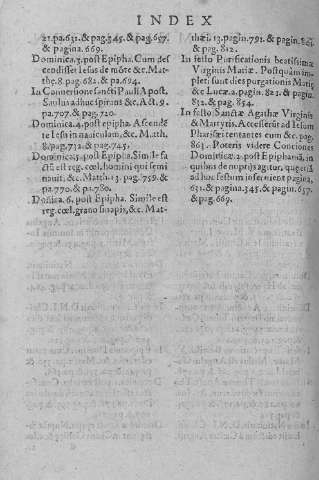 INDEX
21.pa.631.& pag.345.& pag.657.
& pagina.669.
Dominica.3.post Epipha. Cum des
cendisset Iesus de mōte &c.Mat-
the.8.pag.681.& pa.694.
In Conuersione sancti Pauli A post.
Saulus adhuc spirans &c.Act.9.
pa.707.pag.720.
Dominica.4.post Epipha.Ascendē
te Iesu in nauiculam,&c.Matth.
8.pag.732.& pag.745.
Dominica.5.post Epipha. Simile fa
ctū est reg.cœl.homini qui semi
nauit,&c.Matth.13.pag.759.&
pa.770.& pa.780.
Domica.6.post Epipha. Simile est
reg.cœl.grano sinapis,&c. Mat-
thæi.13.pagin.791.& pagin.
& pag.812.
In festo Purificationis beatissimæ
Virginis Mariæ. Postquam im-
pleti sunt dies purgationis Mariæ
&c Lucæ.2.pagin.823.& pagin.
832.& pag.854.
In festo Sanctæ Agathæ Virginis
& Martyris. Accesserūt ad Iesum
Pharisæi tentantes eum &c.pag.
863. Poteris videre Conciones
Dominicæ.2.post Epiphaniā, in
quibus de nuptijs agitur, quę etiā
ad huc festum inseruient pagina,
631.& pagina.345.& pagin.657.
& pag.669.